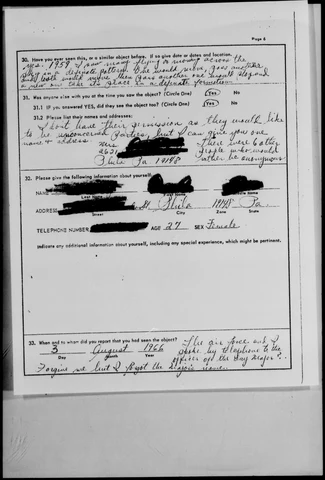 Page 8
30. Have you ever seen this, or a similar object before. If so give date or dates and location.
yes. 1959 I saw many flying or moving across the
sky in a definate pattern. One would move, then another
and would move then another one would stop and
a new one take its place in a definate formation
31. Was anyone else with you at the time you saw the object? (Circle One) Yes No
31.1 IF you answered YES, did they see the object too? (Circle One) Yes No
31.2 Please list their names and addresses:
I dont have their permission as they would like
to be unconcerned parties, but I can give you one
name & address Mrs There were 6 other
2631 people who would
Phila Pa 19148 rather be anonymous
32. Please give the following information about yourself:
NAME
Last Name First Name Middle Name
ADDRESS St Phila 19148 Pa.
Street City Zone State
TELEPHONE NUMBER AGE 27 SEX Female
Indicate any additional information about yourself, including any special experience, which might be pertinent.
33. When and to whom did you report that you had seen the object?
3 August 1966
Day Month Year
The air force and I
spoke by telephone to the
officer of the day Major
Forgive me but I forgot the Majors name.